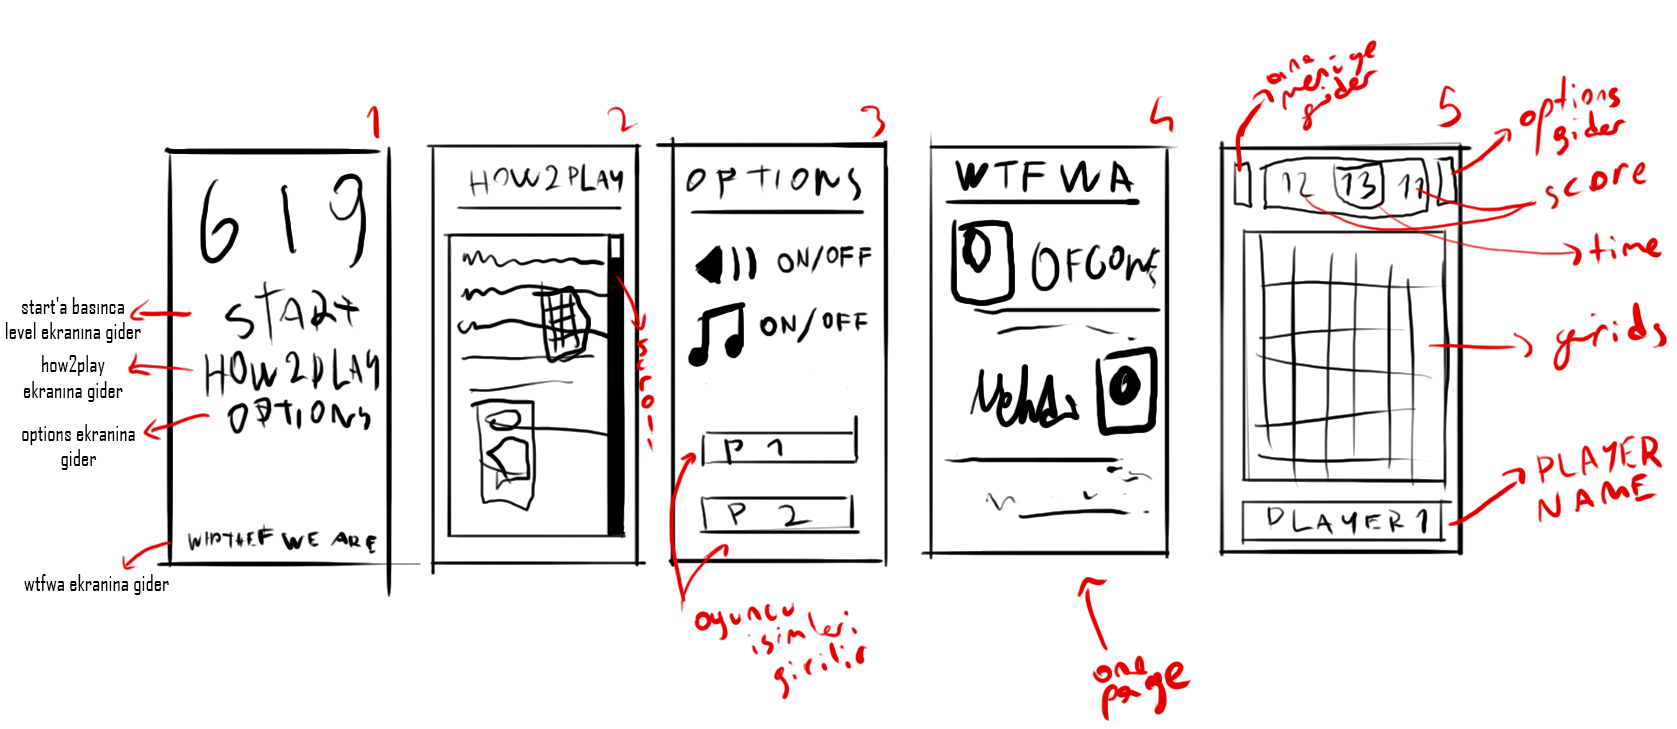 1
619
START
HOW2PLAY
OPTIONS
start'a basınca
level ekranına gider
how2play
ekranına gider
options ekranina
gider
WHOTHEF WE ARE
wtfwa ekranina gider
2
HOW2PLAY
scroll
3
OPTIONS
ON/OFF
ON/OFF
P 1
P 2
oyuncu
isimleri
girilir
4
WTFWA
OFGONE
one
page
5
ana
menüye
gider
options
gider
12 13 11
score
time
grids
PLAYER1
PLAYER
NAME